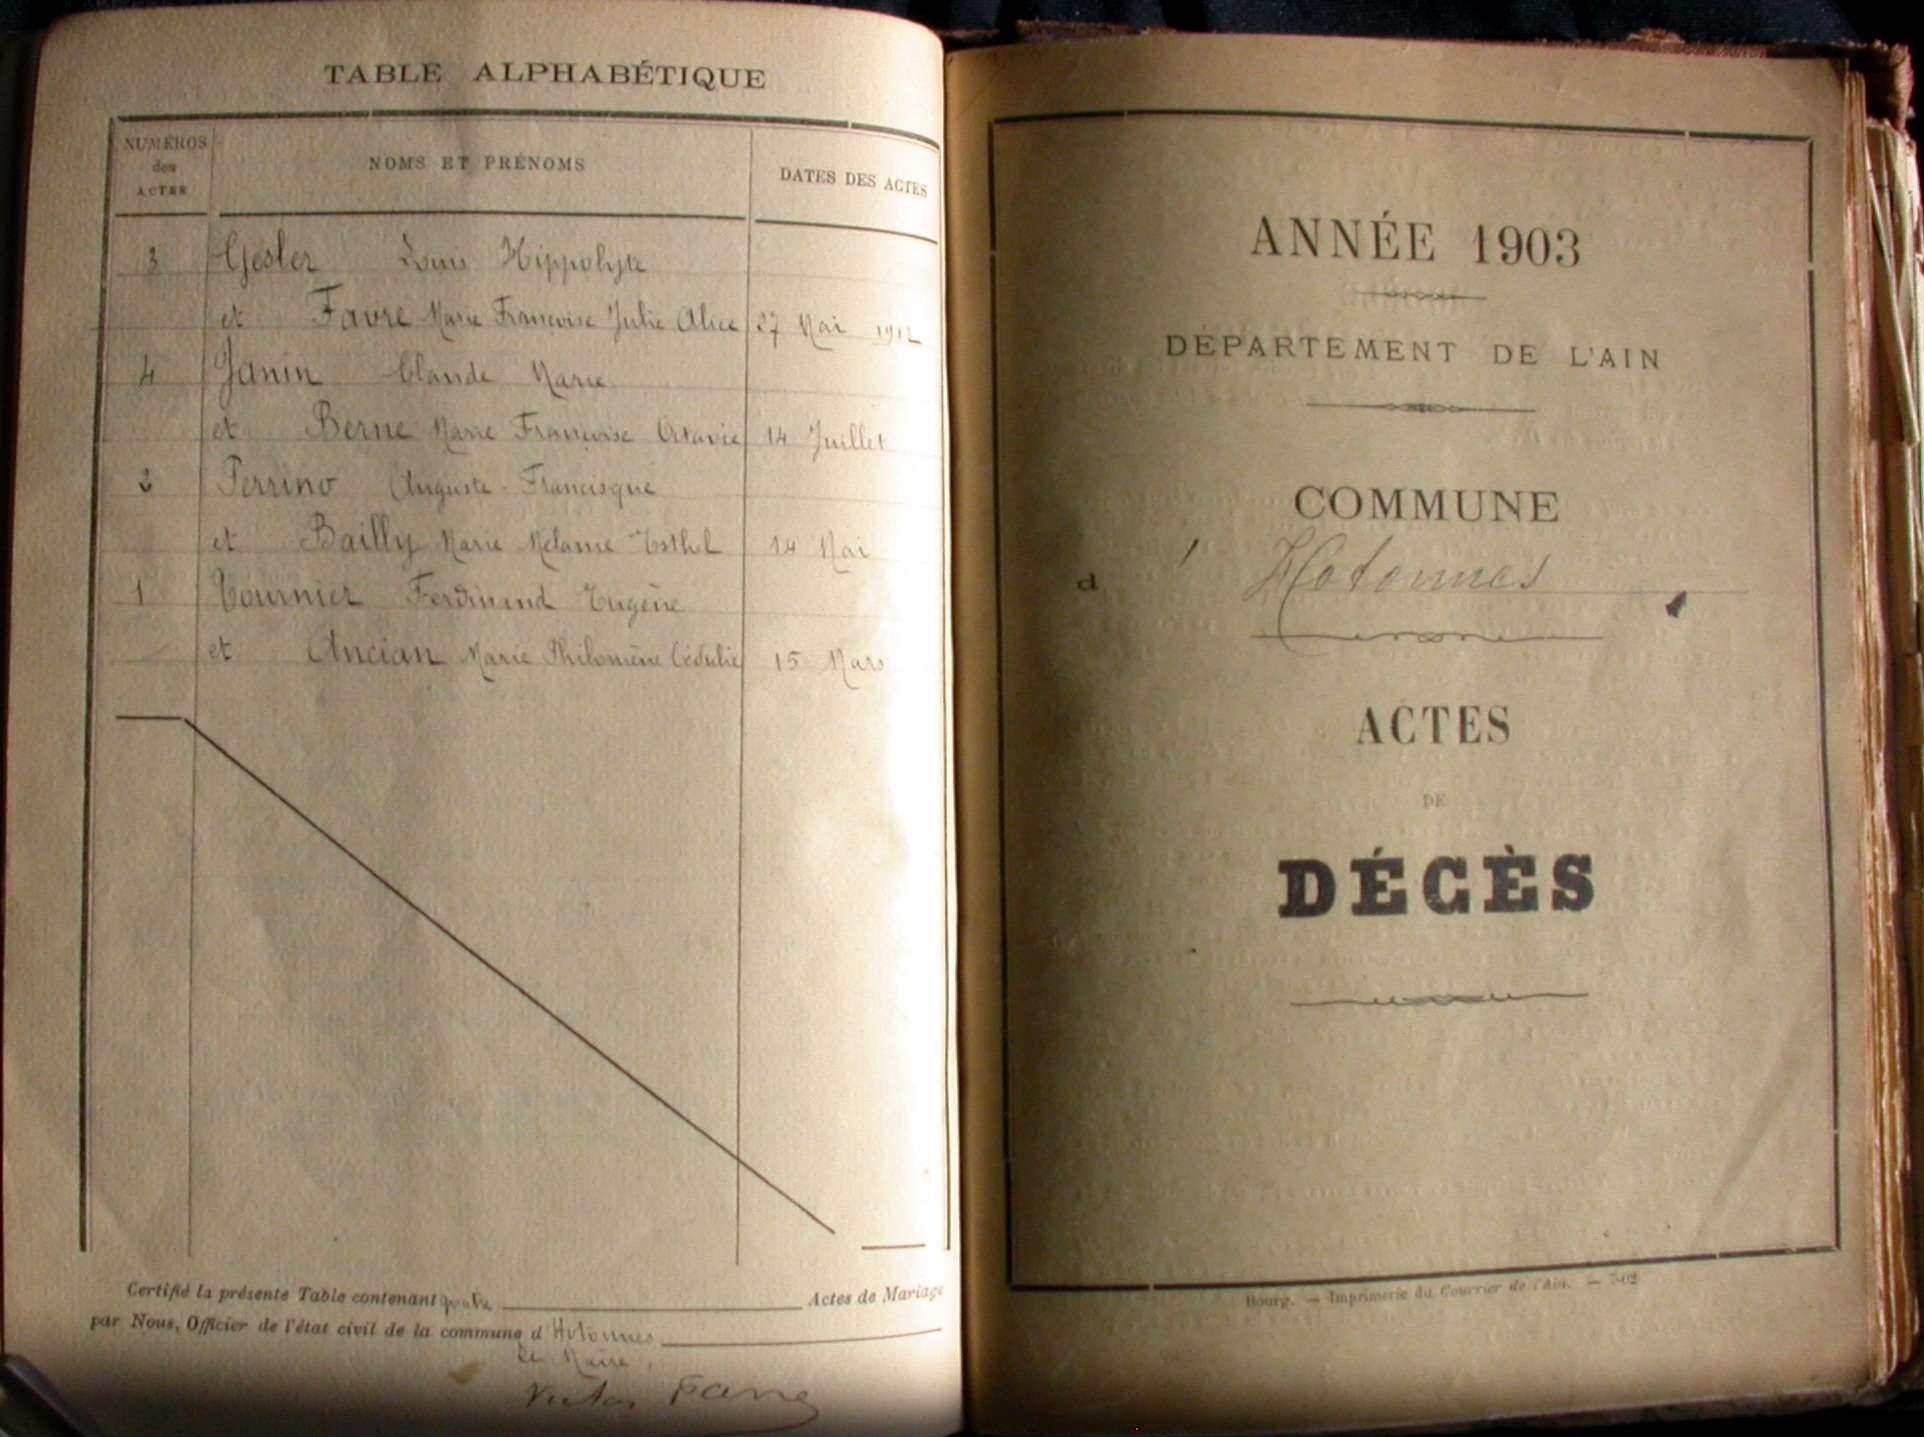 TABLE ALPHABÉTIQUE
NUMÉROS
des
ACTES
NOMS ET PRÉNOMS
DATES DES ACTES
3 Gesler Louis Hippolyte
et Favre Marie Françoise Julie Alice 27 Mai 1912
4 Janin Claude Marie
et Berne Marie Françoise Octavie 14 Juillet
2 Perrino Auguste-Francisque
et Bailly Marie Mélanie Esthel 14 Mai
1 Tournier Ferdinand Eugène
et Ancian Marie Philomène Cédulie 15 Mars
Certifié la présente Table contenant quatre Actes de Mariage
par Nous, Officier de l'état civil de la commune d'Hotonnes
Le Maire,
Victor Favre
ANNÉE 1903
DÉPARTEMENT DE L'AIN
COMMUNE
d'Hotonnes
ACTES
DE
DÉCÈS
Bourg. — Imprimerie du Courrier de l'Ain. — 7-02